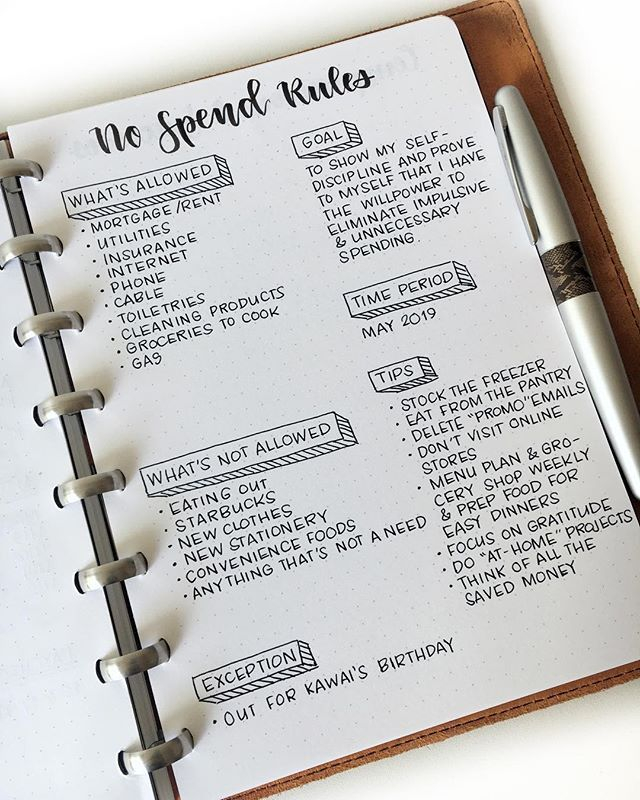 No Spend Rules
WHAT'S ALLOWED
• MORTGAGE/RENT
• UTILITIES
• INSURANCE
• INTERNET
• PHONE
• CABLE
• TOILETRIES
• CLEANING PRODUCTS
• GROCERIES TO COOK
• GAS
WHAT'S NOT ALLOWED
• EATING OUT
• STARBUCKS
• NEW CLOTHES
• NEW STATIONERY
• CONVENIENCE FOODS
• ANYTHING THAT'S NOT A NEED
EXCEPTION
• OUT FOR KAWAI'S BIRTHDAY
GOAL
TO SHOW MY SELF-
DISCIPLINE AND PROVE
TO MYSELF THAT I HAVE
THE WILLPOWER TO
ELIMINATE IMPULSIVE
& UNNECESSARY
SPENDING.
TIME PERIOD
MAY 2019
TIPS
• STOCK THE FREEZER
• EAT FROM THE PANTRY
• DELETE "PROMO" EMAILS
• DON'T VISIT ONLINE
STORES
• MENU PLAN & GRO-
CERY SHOP WEEKLY
& PREP FOOD FOR
EASY DINNERS
• FOCUS ON GRATITUDE
• DO "AT-HOME" PROJECTS
• THINK OF ALL THE
SAVED MONEY